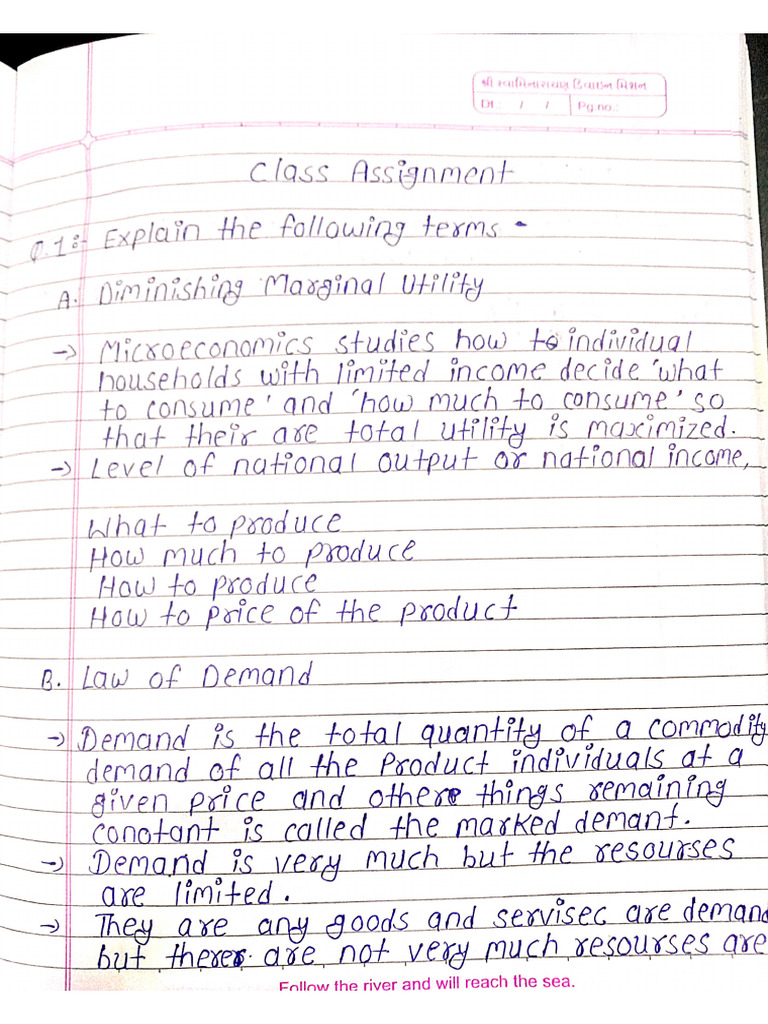 શ્રી સ્વામિનારાયણ ડિવાઇન મિશન
Dt.: / / Pg.no.:
Class Assignment
Q.1:- Explain the following terms -
A. Diminishing Marginal Utility
-> Microeconomics studies how to individual
households with limited income decide 'what
to consume' and 'how much to consume' so
that their are total utility is maximized.
-> Level of national output or national income,
What to produce
How much to produce
How to produce
How to price of the product
B. Law of Demand
-> Demand is the total quantity of a commodity
demand of all the Product individuals at a
given price and othere things remaining
conotant is called the marked demant.
-> Demand is very much but the resourses
are limited.
-> They are any goods and servisec are demand
but theres are not very much resourses are
Follow the river and will reach the sea.